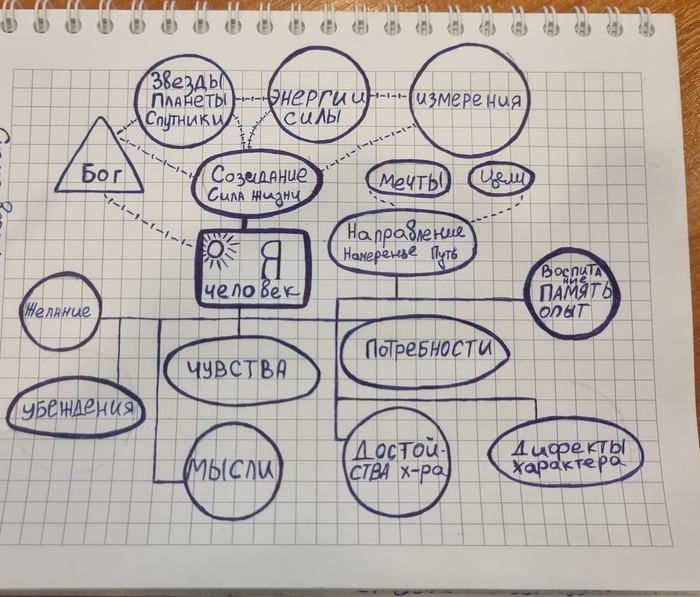 Звезды
Планеты
Спутники
Энергии
силы
измерения
Бог
Созидание
Сила жизни
мечты
Цели
Направление
Намеренье Путь
Я
человек
Воспита
ние
ПАМЯТЬ
опыт
Желание
ЧУВСТВА
ПОТРЕБНОСТИ
УБЕЖДЕНИЯ
МЫСЛИ
ДОСТОЙ-
СТВА х-ра
Дифекты
характера